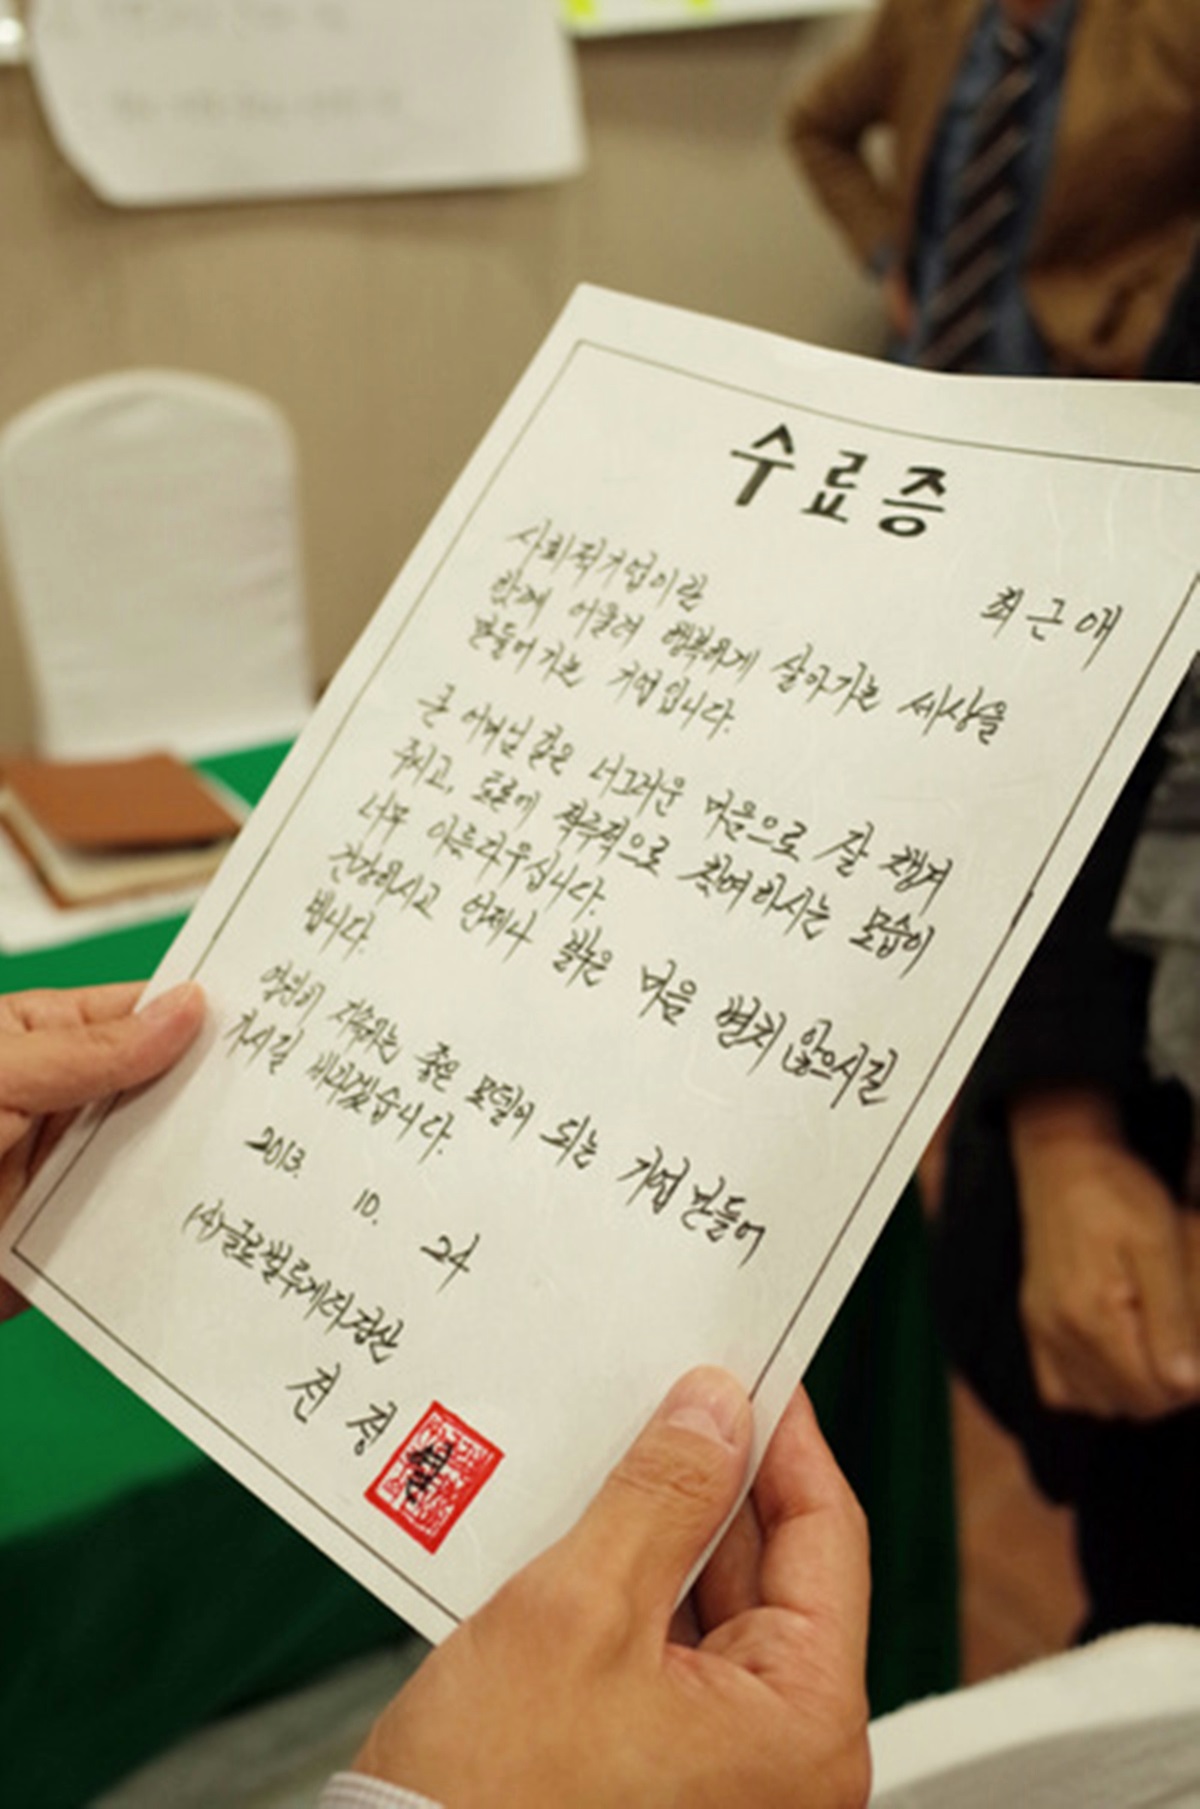 수료증
최근애
사회적기업이란
함께 어울려 행복하게 살아가는 세상을
만들어가는 기업입니다.
큰 어머님 같은 너그러운 마음으로 잘 챙겨
주시고, 토론에 적극적으로 참여하시는 모습이
너무 아름다우십니다.
건강하시고 언제나 밝은 마음 변치 않으시길
빕니다.
영원히 지속하는 좋은 모델이 되는 기업 만들어
가시길 바라겠습니다.
2013. 10. 24
(사)글로컬투게더경산
전 정